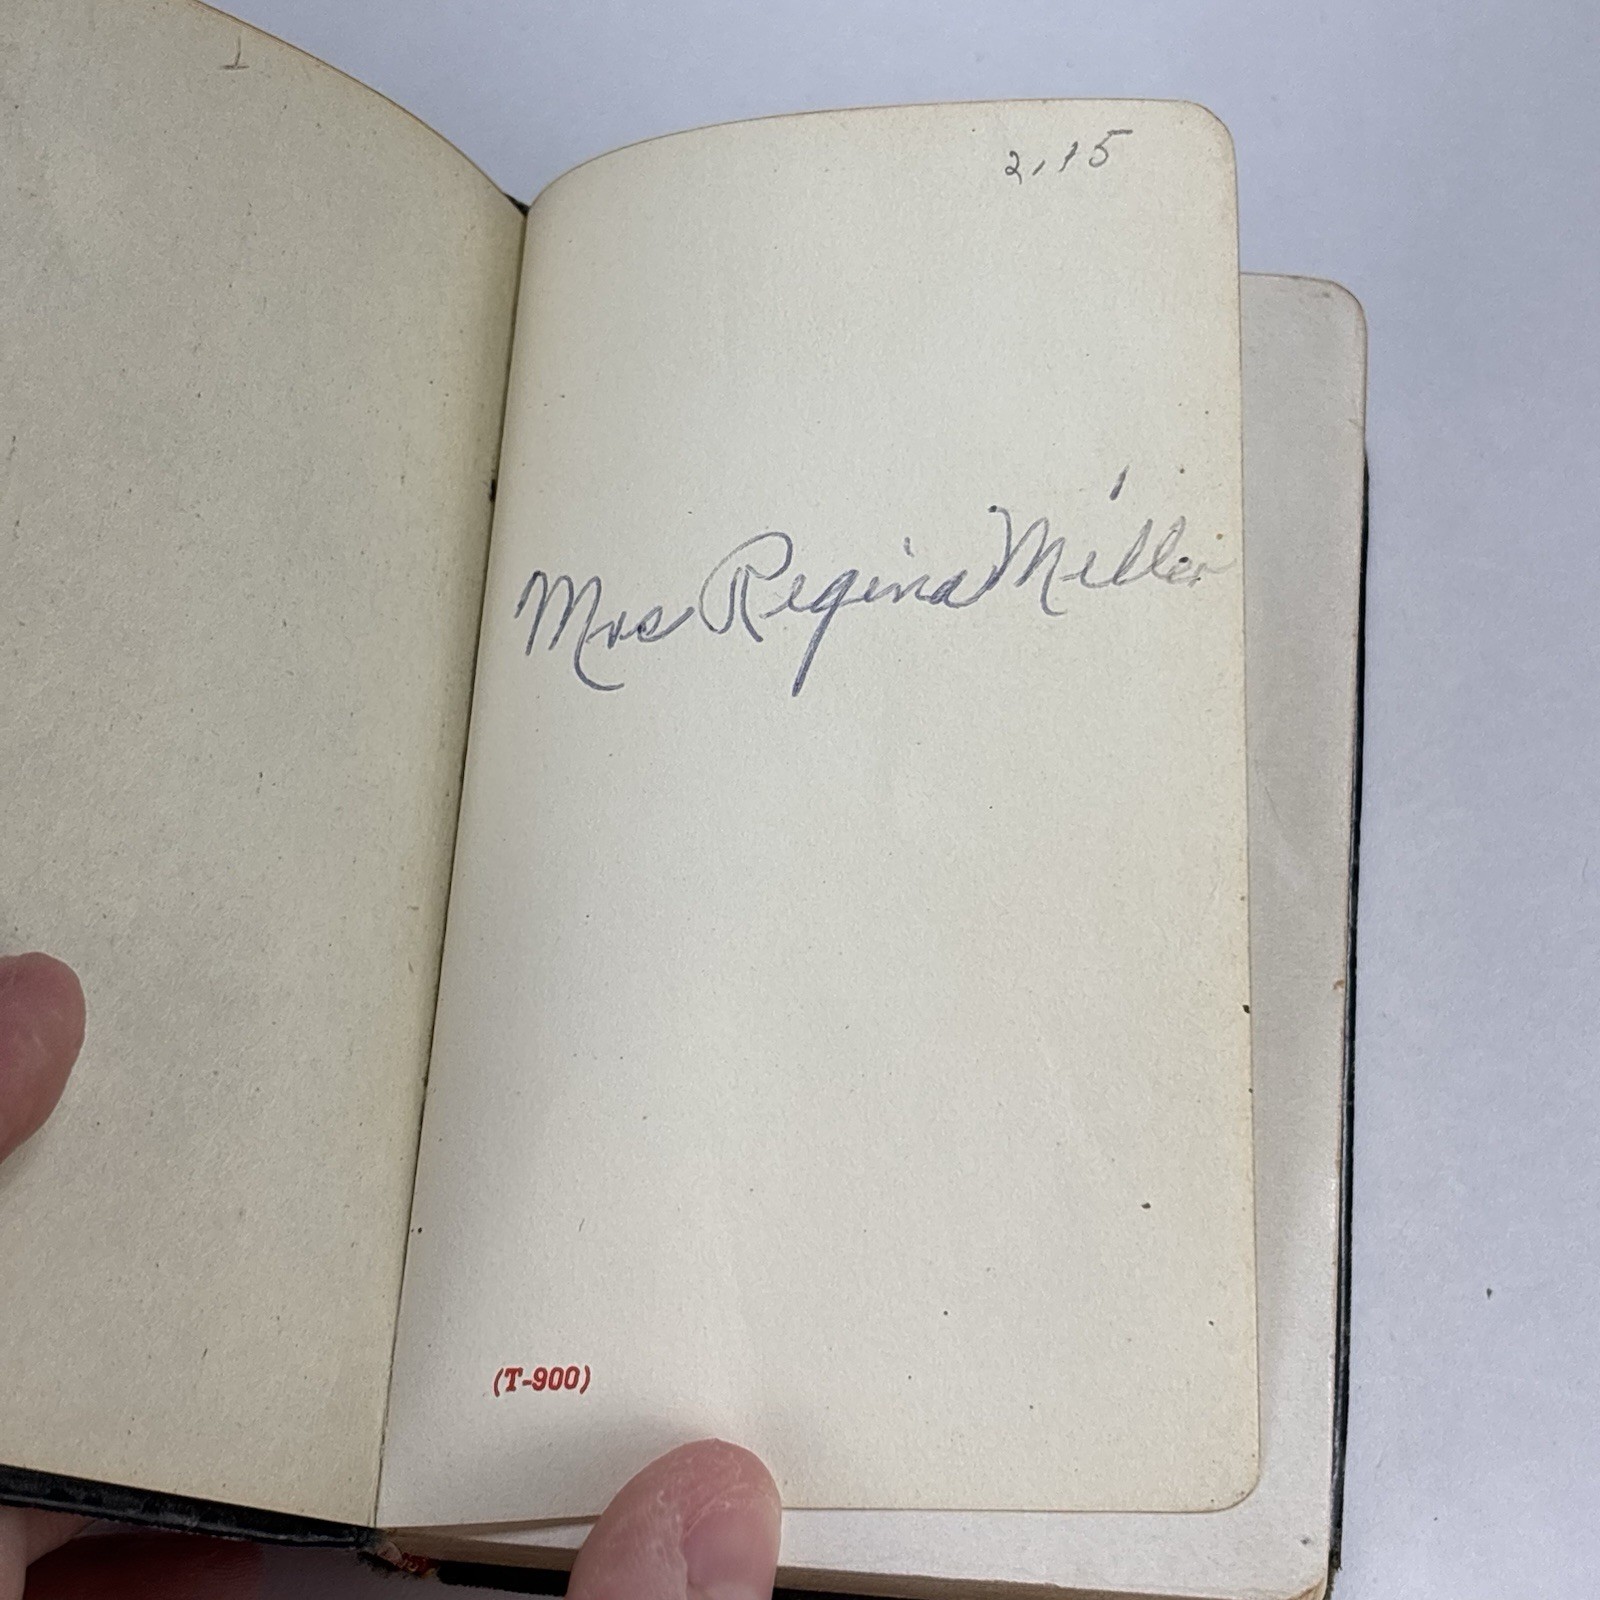 1
2.15
Mrs Regina Miller
(T-900)